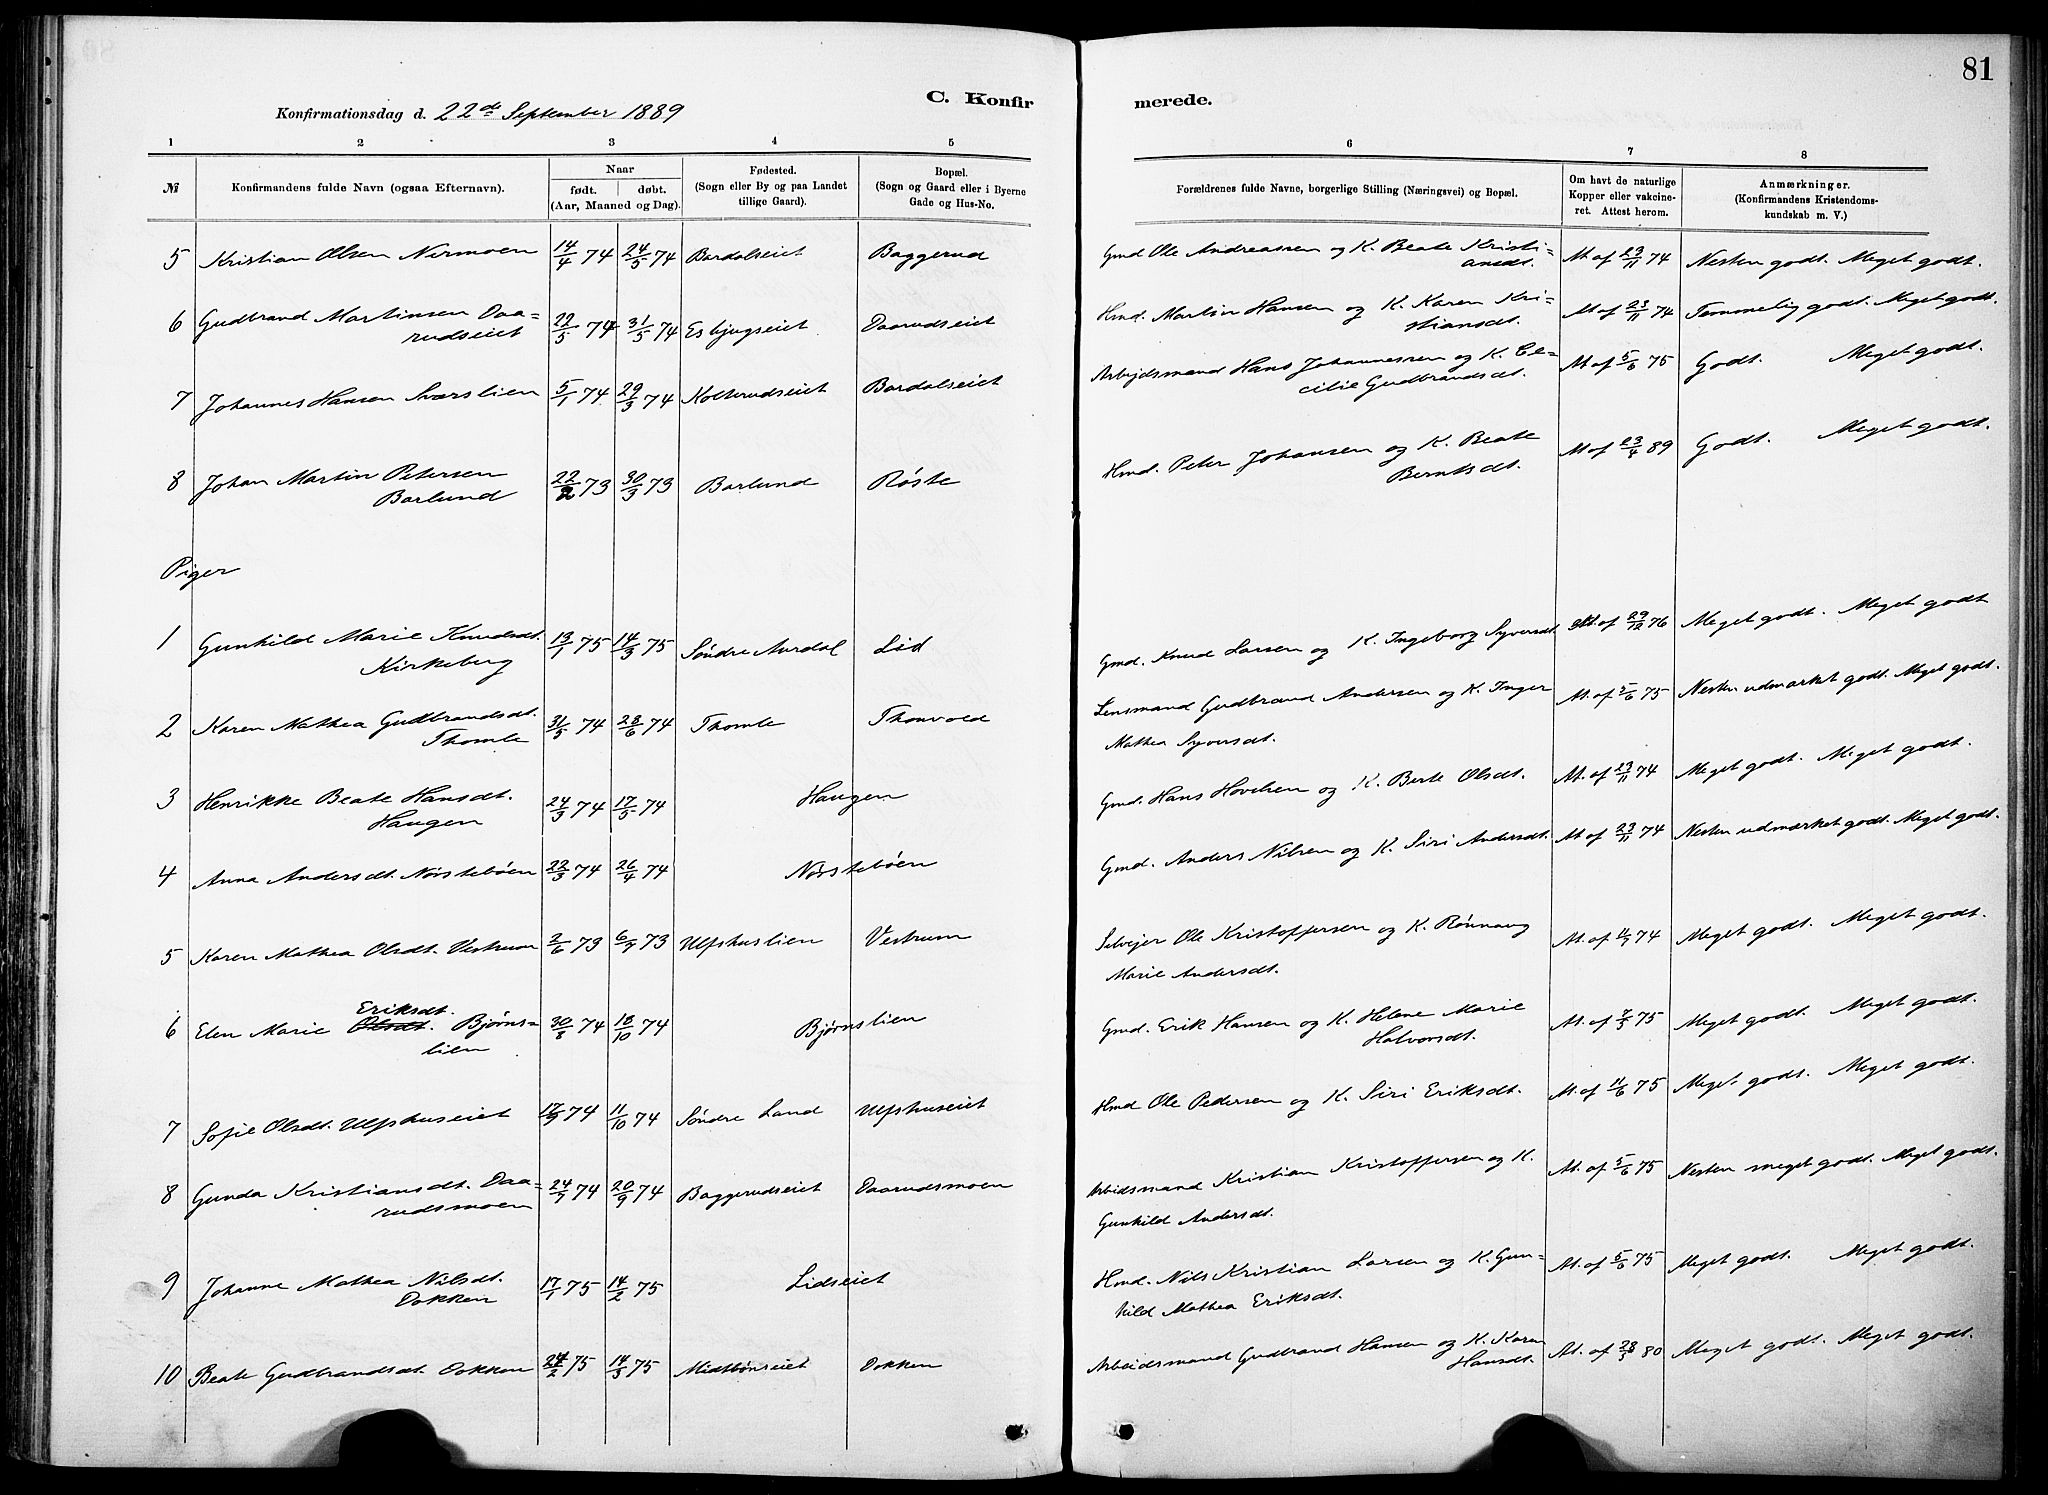 81
C. Konfir merede.
Konfirmationsdag d. 22de September 1889
1 2 3 4 5 6 7 8
№ Konfirmandens fulde Navn (ogsaa Efternavn). Naar født. døbt. (Aar, Maaned og Dag). Fødested. (Sogn eller By og paa Landet tillige Gaard). Bopæl. (Sogn og Gaard eller i Byerne Gade og Hus-No. Forældrenes fulde Navne, borgerlige Stilling (Næringsvei) og Bopæl. Om havt de naturlige Kopper eller vakcineret. Attest herom. Anmærkninger. (Konfirmandens Kristendomskundskab m. V.)
5 Kristian Olsen Nermoen 14/4 74 24/5 74 Bardalseiet Baggerud Gmd Ole Andreassen og K. Beate Kristiansdt. At. af 23/11 74 Nesten godt. Meget godt.
6 Gudbrand Martinsen Daarudseiet 22/5 74 31/5 74 Esbjugseiet Daarudseiet Hmd. Martin Hansen og K. Karen Kristiansdt. At. af 23/11 74 Temmelig godt. Meget godt.
7 Johannes Hansen Sværslien 5/1 74 29/3 74 Kolterudseiet Bardalseiet Arbejdsmand Hans Johannessen og K. Cecilie Gudbrandsdt. At. af 5/6 75 Godt. Meget godt.
8 Johan Martin Petersen Barlund 22/2 73 30/3 73 Barlund Røste Hmd. Peter Johansen og K. Beate Berntsdt. At. af 23/4 89 Godt. Meget godt.
Piger
1 Gunhild Marie Knudsdt. Kirkeberg 13/1 75 14/3 75 Søndre Aurdal Lid Gmd. Knud Larsen og K. Ingeborg Syversdt. At. af 29/12 76 Meget godt. Meget godt
2 Karen Mathea Gudbrandsdt. Thomle 31/5 74 28/6 74 Thomle Thonvold Lensmand Gudbrand Andersen og K. Inger Mathea Syversdt. At. af 5/6 75 Nesten udmærket godt. Meget godt.
3 Henrikke Beate Hansdt. Haugen 24/3 74 17/5 74 Haugen Gmd. Hans Hovelsen og K. Berte Olsdt. At. af 23/11 74 Meget godt. Meget godt.
4 Anna Andersdt. Nørstebøen 22/3 74 26/4 74 Nørstebøen Gmd. Anders Nilsen og K. Siri Andersdt. At. af 23/11 74 Nesten udmærket godt. Meget godt.
5 Karen Mathea Olsdt. Vestrum 2/6 73 6/7 73 Ulfshuslien Vestrum Selvejer Ole Kristoffersen og K. Rønnaug Marie Andersdt. At. af 11/7 74 Meget godt. Meget godt.
6 Elen Marie Olsdt. Eriksdt. Bjørnslien 30/8 74 18/10 74 Bjørnslien Gmd. Erik Hansen og K. Helene Marie Halvorsdt. At. af 7/5 75 Meget godt. Meget godt.
7 Sofie Olsdt. Ulfshuseiet 17/9 74 11/10 74 Søndre Land Ulfshuseiet Hmd Ole Pedersen og K. Siri Eriksdt. At. af 11/6 75 Meget godt. Meget godt.
8 Gunda Kristiansdt. Daarudsmoen 24/7 74 20/9 74 Baggerudseiet Daarudsmoen Arbeidsmand Kristian Kristoffersen og K. Gunhild Andersdt. At. af 5/6 75 Nesten meget godt. Meget godt.
9 Johanne Mathea Nilsdt. Dokken 17/1 75 14/2 75 Lidseiet Hmd. Nils Kristian Larsen og K. Gunhild Mathea Eriksdt. At. af 5/6 75 Meget godt. Meget godt.
10 Beate Gudbrandsdt. Dokken 24/2 75 14/3 75 Midtbønseiet Dokken Arbeidsmand Gudbrand Hansen og K. Karen Hansdt. At. af 28/5 80 Meget godt. Meget godt.